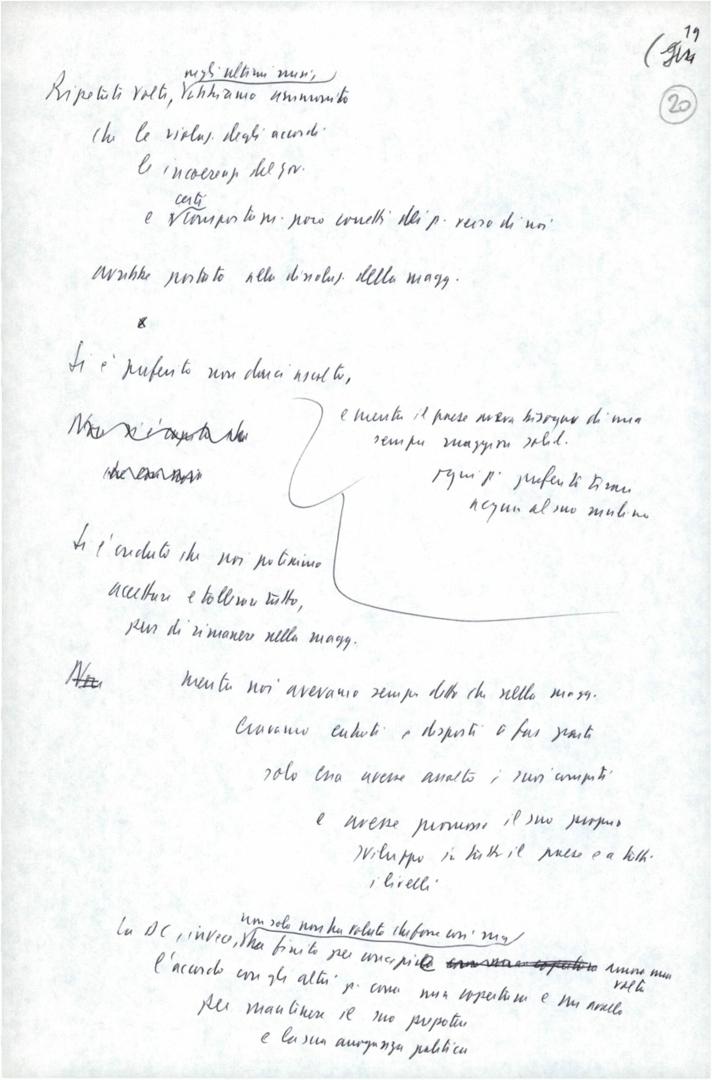 19
20
negli ultimi mesi,
Ripetute volte, abbiamo ammonito
che le violaz. degli accordi
le incoerenze del gov.
certi
e comportam. poco corretti dei p. verso di noi
avrebbe portato alla dissoluz. della magg.
Si è preferito non darci ascolto,
e mentre il paese aveva bisogno di una
sempre maggiore solid.
ogni p. preferì tirare
acqua al suo mulino
Si è creduto che noi potessimo
accettare e tollerare tutto,
pur di rimanere nella magg.
Non
mentre noi avevamo sempre detto che nella magg.
eravamo entrati e disposti a far parte
solo essa avesse assolto i suoi compiti
e avesse promosso il suo proprio
sviluppo in tutto il paese e a tutti
i livelli
non solo non ha voluto che fosse così ma
La DC, invece, ha finito per concepire ancora una
volta
l'accordo con gli altri p. come una copertura e un avallo
per mantenere il suo prepotere
e la sua arroganza politica